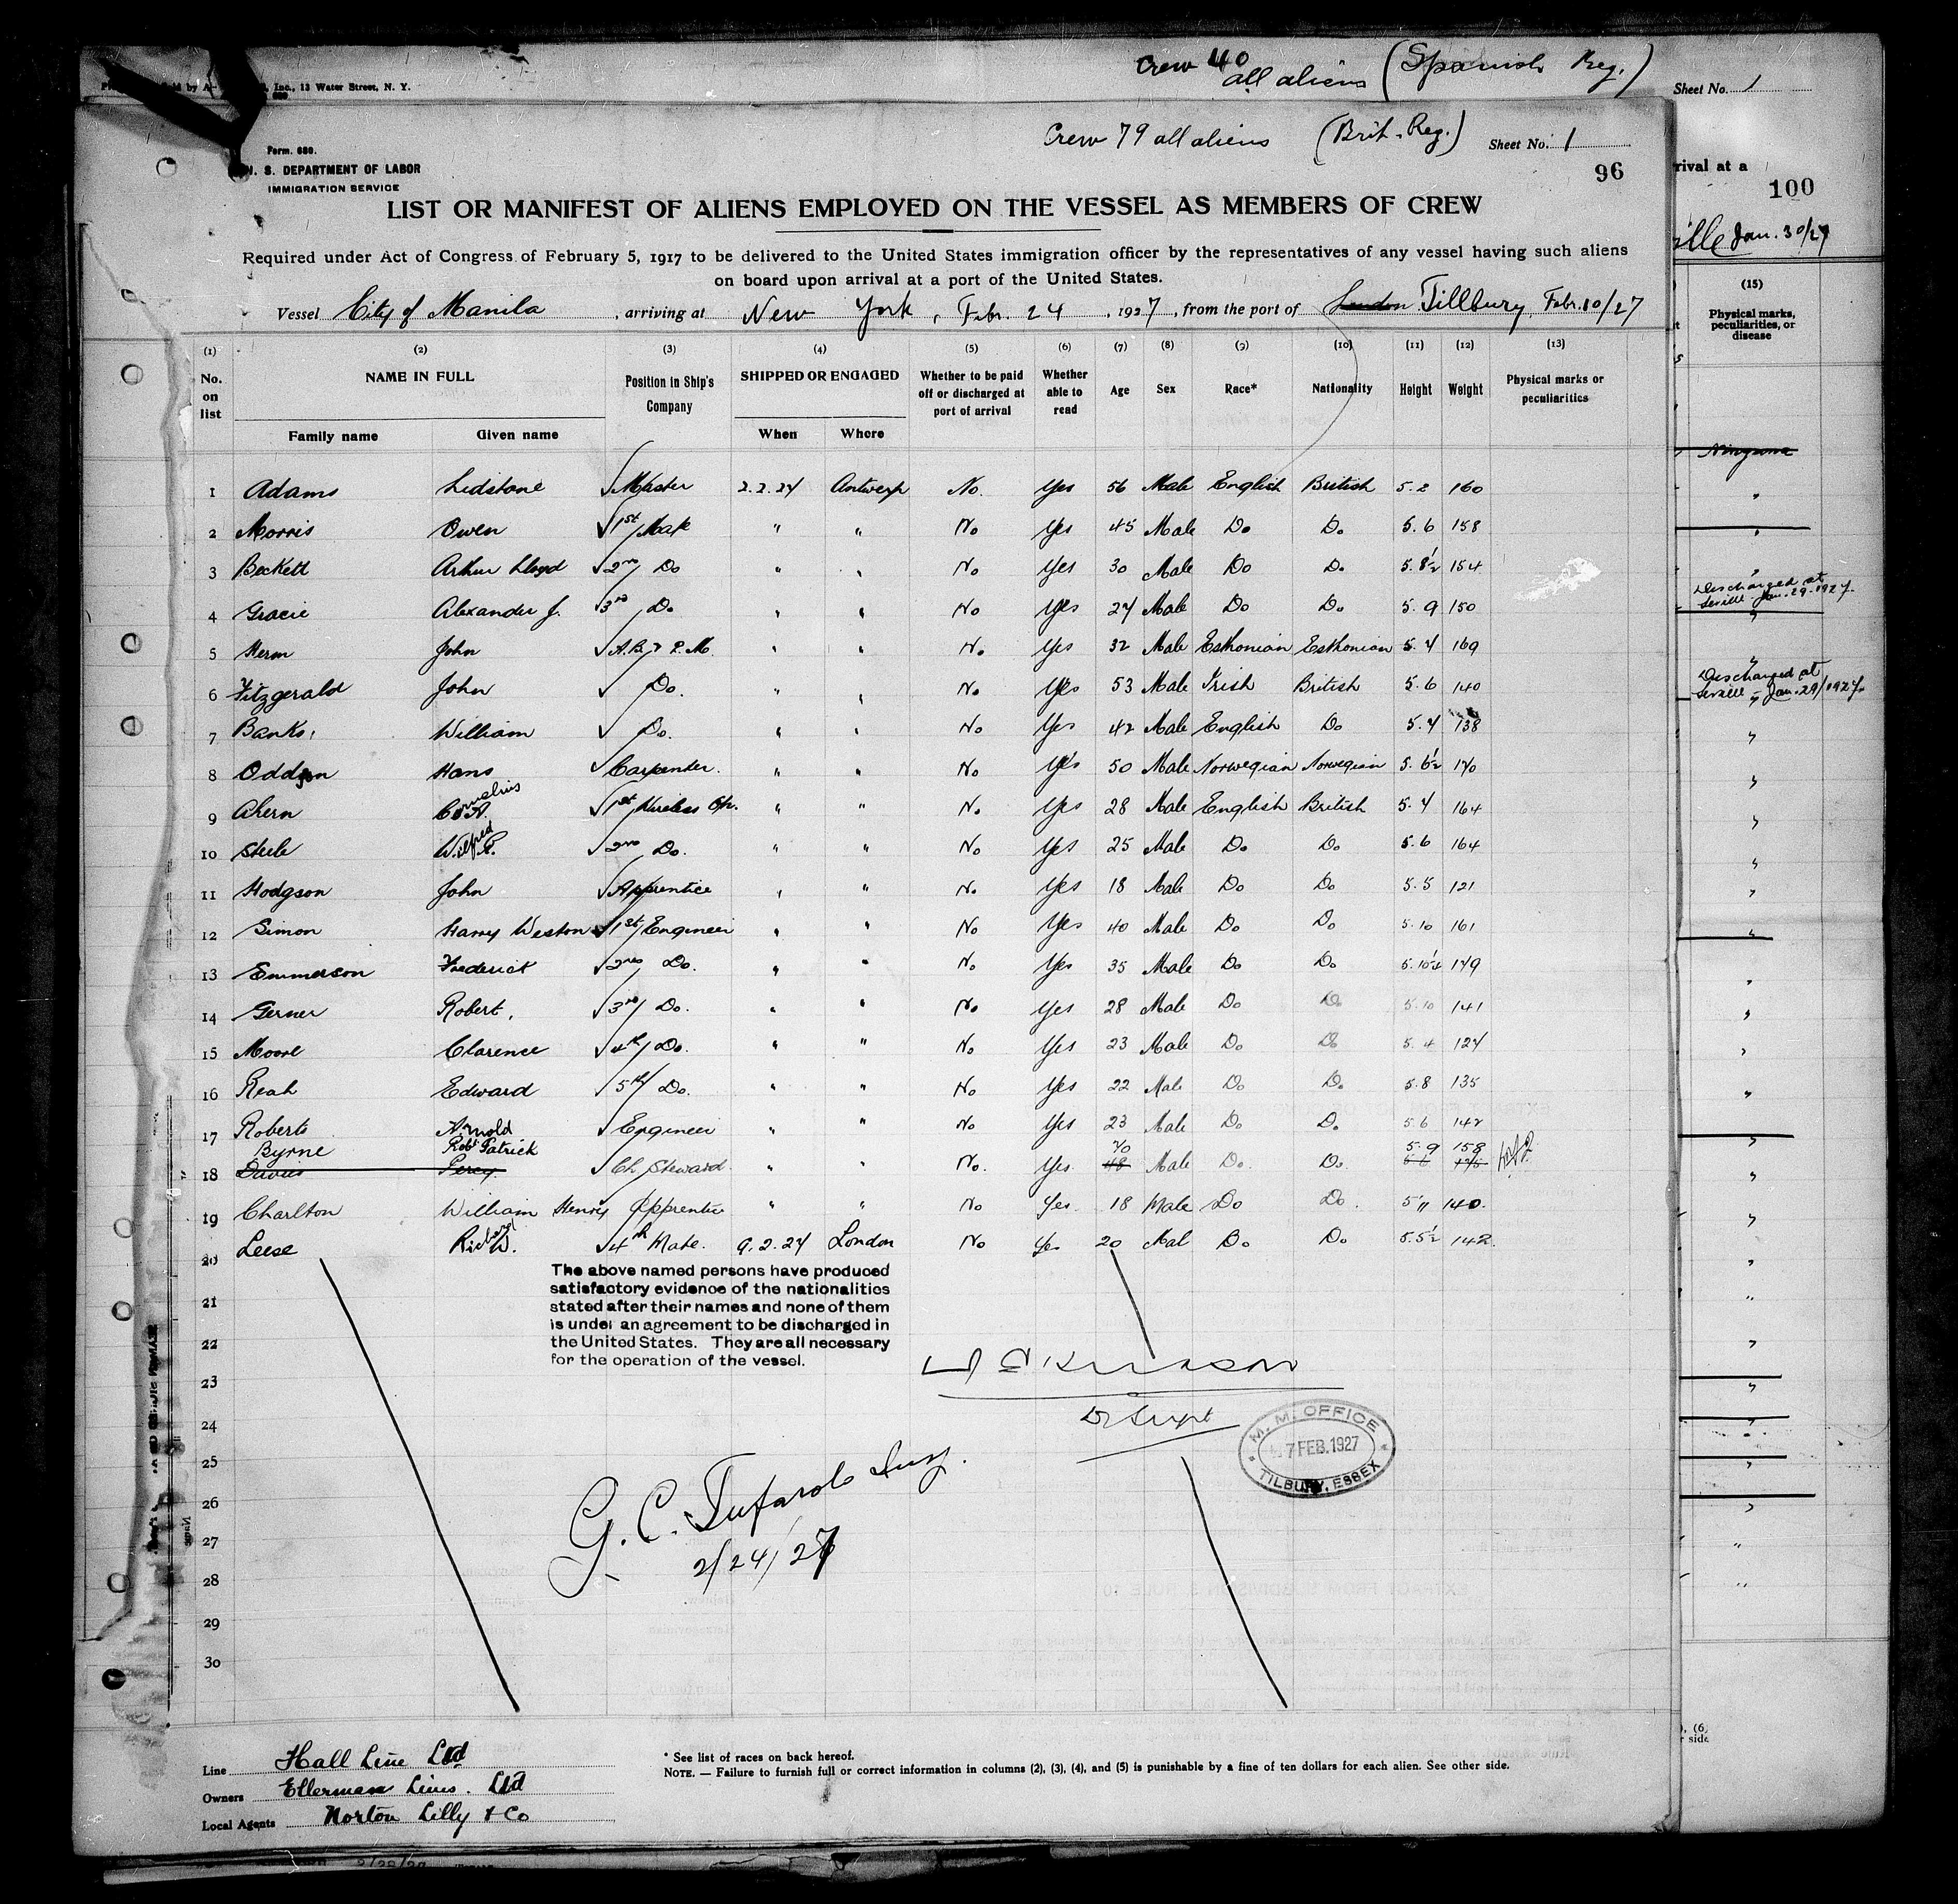 Inc., 13 Water Street, N. Y.
Crew 40
all aliens (Spanish Reg.)
Sheet No. 1
Crew 79 all aliens (Brit. Reg.) Sheet No. 1
Form. 680.
S. DEPARTMENT OF LABOR
IMMIGRATION SERVICE
96
rival at a
100
LIST OR MANIFEST OF ALIENS EMPLOYED ON THE VESSEL AS MEMBERS OF CREW
ille Jan. 30/27
Required under Act of Congress of February 5, 1917 to be delivered to the United States immigration officer by the representatives of any vessel having such aliens
on board upon arrival at a port of the United States.
Vessel City of Manila, arriving at New York, Febr. 24, 1927, from the port of London Tillbury, Febr. 10/27
(1) (2) (3) (4) (5) (6) (7) (8) (9) (10) (11) (12) (13)
No. on list
NAME IN FULL
Family name Given name
Position in Ship's Company
SHIPPED OR ENGAGED
When Where
Whether to be paid off or discharged at port of arrival
Whether able to read
Age Sex Race* Nationality Height Weight
Physical marks or peculiarities
(15)
Physical marks, peculiarities, or disease
1 Adams Lidstone Master 2.2.27 Antwerp No. Yes 56 Male English British 5.2 160
2 Morris Owen 1st Mate " " No Yes 45 Male Do Do. 5.6 158
3 Beckett Arthur Lloyd 2nd Do " " No Yes 30 Male Do Do. 5.8½ 154
4 Gracie Alexander J. 3rd Do " " No Yes 27 Male Do Do. 5.9 150
5 Herm John A.B. & P.M. " " No. Yes 32 Male Esthonian Esthonian 5.7 169
6 Fitzgerald John Do. " " No Yes 53 Male Irish British 5.6 140
7 Banks, William Do. " " No Yes 42 Male English Do 5.7 138
8 Oddson Hans Carpenter. " " No Yes 50 Male Norwegian Norwegian 5.6½ 170
9 Ahern Cornelius A. 1st Wireless Op. " " No. Yes 28 Male English British 5.7 164
10 Steele Wilfred P. 2nd Do. " " No Yes 25 Male Do Do. 5.6 164
11 Hodgson John Apprentice " " No. Yes 18 Male Do Do 5.5 121
12 Simon Harry Weston 1st Engineer " " No Yes 40 Male Do Do. 5.10 161
13 Emmerson Frederick 2nd Do. " " No. Yes 35 Male Do Do. 5.10½ 179
14 Gerner Robert. 3rd Do. " " No. Yes 28 Male Do Do. 5.10 141
15 Moore Clarence 4th Do. " " No Yes 23 Male Do Do 5.4 127
16 Reah Edward 5th Do. " " No Yes 22 Male Do Do. 5.8 135
17 Roberts Arnold Engineer " " No Yes 23 Male Do Do. 5.6 142
Byrne Robt Patrick 40 5.9 158
18 Davies Percy. Ch Steward. " " No. Yes 48 Male Do. Do. 5.6
19 Charlton William Henry Apprentice " " No Yes. 18 Male Do Do. 5'11 140.
20 Leese Richard W. 4th Mate. 9.2.27 London No Yes 20 Male Do Do. 5.5½ 142.
The above named persons have produced
satisfactory evidence of the nationalities
stated after their names and none of them
is under an agreement to be discharged in
the United States. They are all necessary
for the operation of the vessel.
21
22
23
24
25
26
27
28
29
30
Dr Supt
M. M. OFFICE
7 FEB. 1927
TILBURY, ESSEX
G. C. Tufarolo Insp.
2/24/27
Discharged at
Seville Jan. 29. 1927.
Discharged at
Seville Jan. 29/1927.
Line Hall Line Ltd
Owners Ellerman Lines. Ltd
Local Agents Norton Lilly & Co
* See list of races on back hereof.
NOTE. — Failure to furnish full or correct information in columns (2), (3), (4), and (5) is punishable by a fine of ten dollars for each alien. See other side.